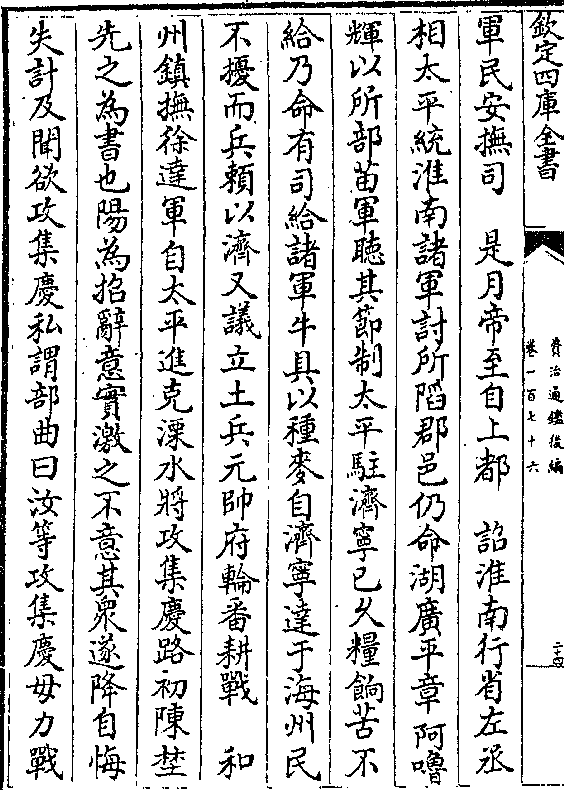 欽定四庫全書
資治通鑑後編
卷一百七十六
二十四
軍民安撫司　是月帝至自上都　詔淮南行省左丞
相太平統淮南諸軍討所䧟郡邑仍命湖廣平章阿嚕
輝以所部苗軍聽其節制太平駐濟寧已久糧餉苦不
給乃命有司給諸軍牛具以種麥自濟寧達于海州民
不擾而兵賴以濟又議立土兵元帥府輪番耕戰　和
州鎮撫徐達軍自太平進克溧水將攻集慶路初陳埜
先之為書也陽為招辭意實激之不意其衆遂降自悔
失計及聞欲攻集慶私謂部曲曰汝等攻集慶毋力戰